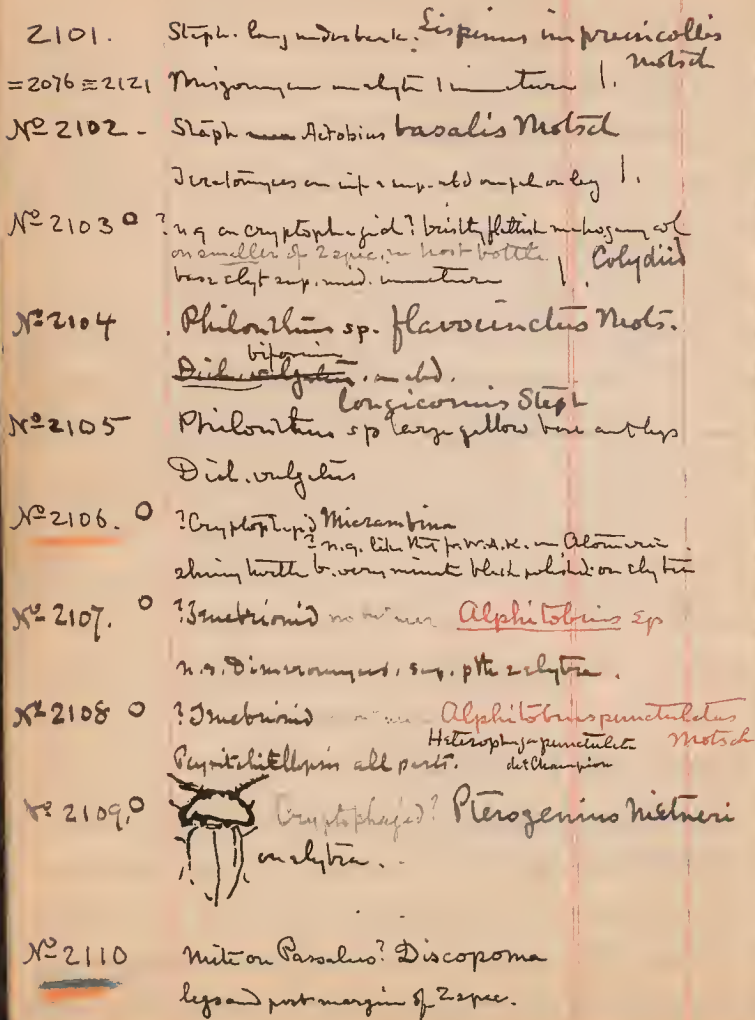 2101. Staph. long under bark. Lispinus impressicollis
Motsch
=2076 =2121 on elytr 1 immature |.
No 2102 - Staph Actobius basalis Motsch
on inf. & sup. abd on leg |.
No 2103 o ? n.g. on cryptophagid? bristly flattish mahogany col
on smaller of 2 spec. in host bottle | Colydiid
base elyt sup. med. immature
No 2104 . Philonthus sp. flavocinctus Mots.
biformis
Dich. vulgatus . on abd.
longicornis Steph
No 2105 Philonthus sp large yellow base ant legs
Dich. vulgatus
No 2106. o ? Cryptophagid Micrambina
? n.g. like that for W.A.K. on Atomaria.
shiny beetle b. very minute black polished on elytra
No 2107. o ? Tenebrionid Alphitobius Sp
n.s. Dimeromyces, sup. pth & elytra.
No 2108 o ? Tenebrionid Alphitobius punctulatus
Heterophaga punctulata Motsch
all parts. det Champion
No 2109. o Cryptophagid? Pterogenius Nietneri
on elytra.
No 2110 Mite on Passalus? Discopoma
legs and post margin of 2 spec.